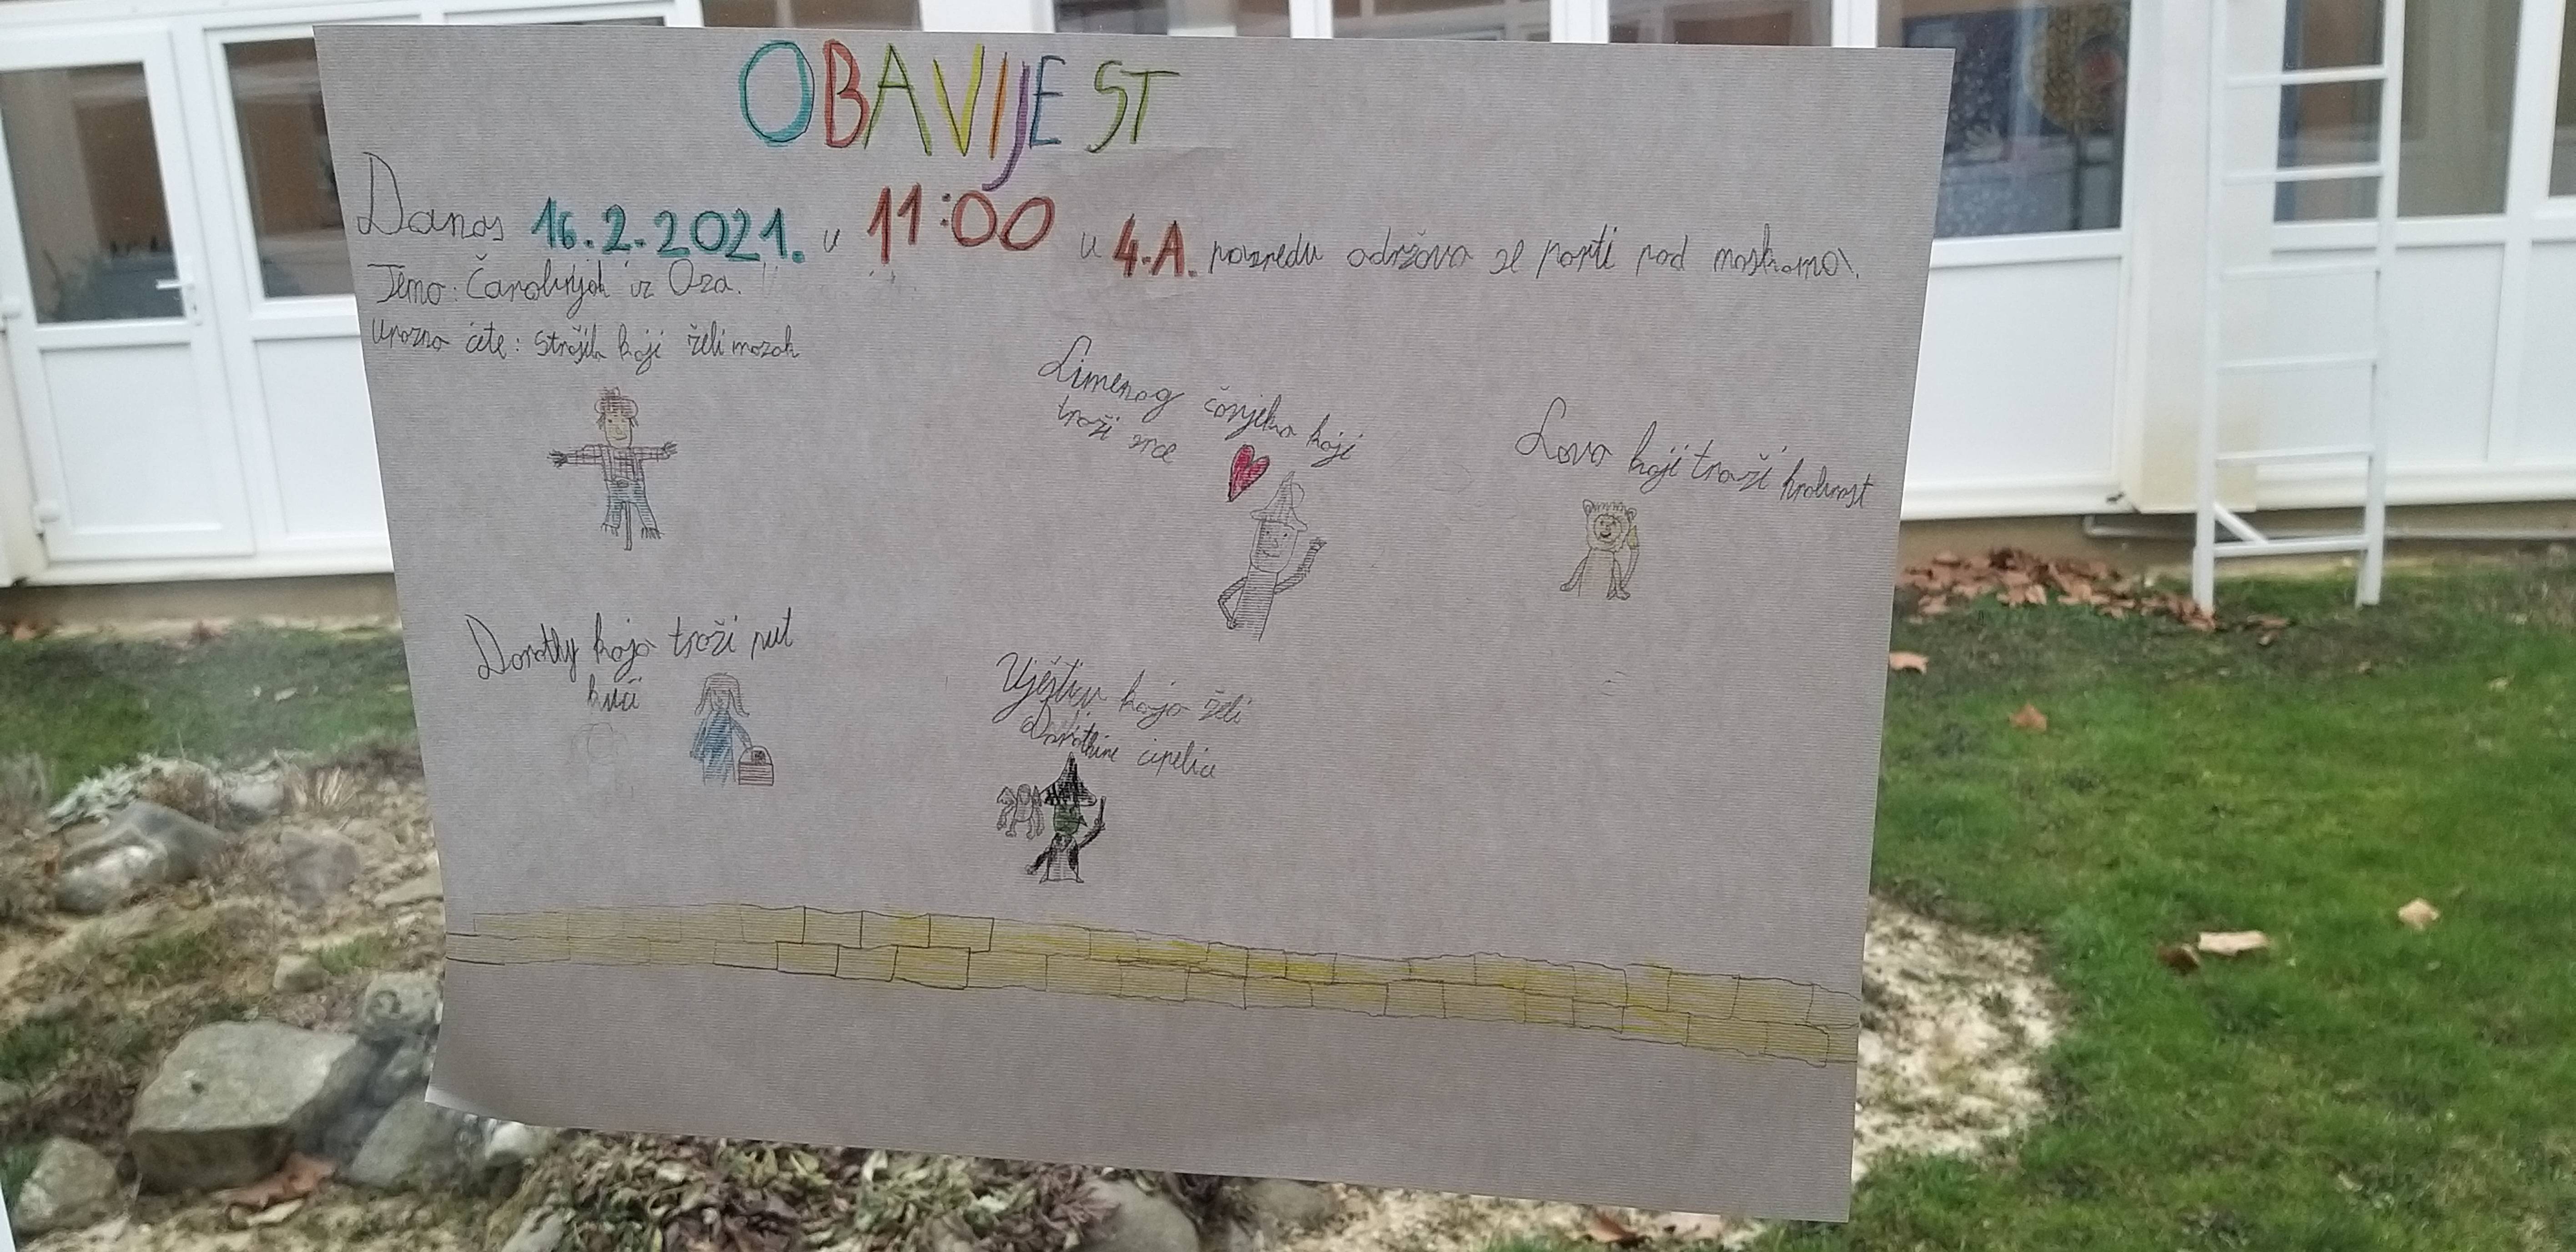 OBAVIJEST
Danas 16.2.2021. u 11:00 u 4.A. razredu održava se parti pod maskama.
Tema: Čarobnjak iz Oza.
Upozna ćete: Strašila koji želi mozak
Limenog čovjeka koji
traži srce
Lava koji traži hrabrost
Dorothy koja traži put
kući
Vješticu koja želi
Dorothine cipelice